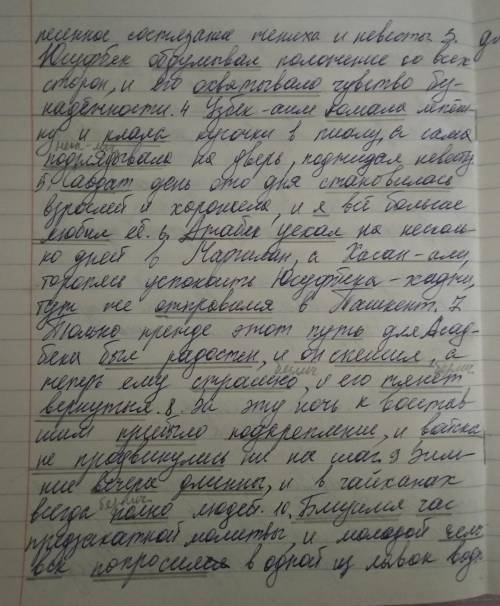 песенное состязание жениха и невесты 3.
Юсуфбек обдумывал положение со всех
сторон, и его охватывало чувство бу-
надёжности. 4 Узбек-аим ломала лепёш-
ку и клала кусочки в пиалу, а сама
подглядывала на дверь, поджидая невесту
5. день ото дня становилась
взрослей и хорошела, и я всё больше
любил её. 6, Атабек уехал на несколь-
ко дней в Маргилан, а Хасан-али,
торопясь успокоить Юсуфбека-хаджи,
тут же отправился в Ташкент. 7
Только прежде этот путь для Асад-
бека был радостен, и он спешил, а
безлич. безлич.
теперь ему страшно, и его тянет
вернуться. 8, За эту ночь к восстав-
шим прибыло подкрепление, и войска
не продвинулись ни на шаг. 9 Зим-
ние вечера длинны, и в чайханах
безлич.
всегда полно людей. 10, Близился час
предзакатной молитвы, и молодой чело-
век попросился в одной из лавок